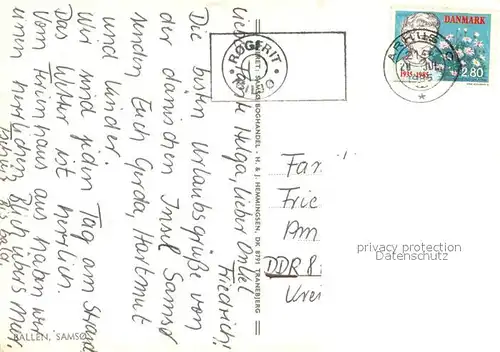 Liebe Tante Helga, lieber Onkel
Friedrich!
Die besten Urlaubsgrüße von
der dänischen Insel Samsø
senden Euch Gerda, Hartmut
und Kinder.
Wir sind jeden Tag am Strand
Das Wetter ist herrlich.
Vom Ferienhaus aus haben wir
einen herrlichen Blick übers Meer.
BALLEN, SAMSØ
SAMSØ BOGHANDEL - H. & J. HEMMINGSEN, DK 8791 TRANEBJERG
RØGFRIT
MILJØ
ÅRHUS C
DANMARK
1935-1985
2.80
Fam
Frie
Am
DDR 8
Krei
privacy protection
Datenschutz